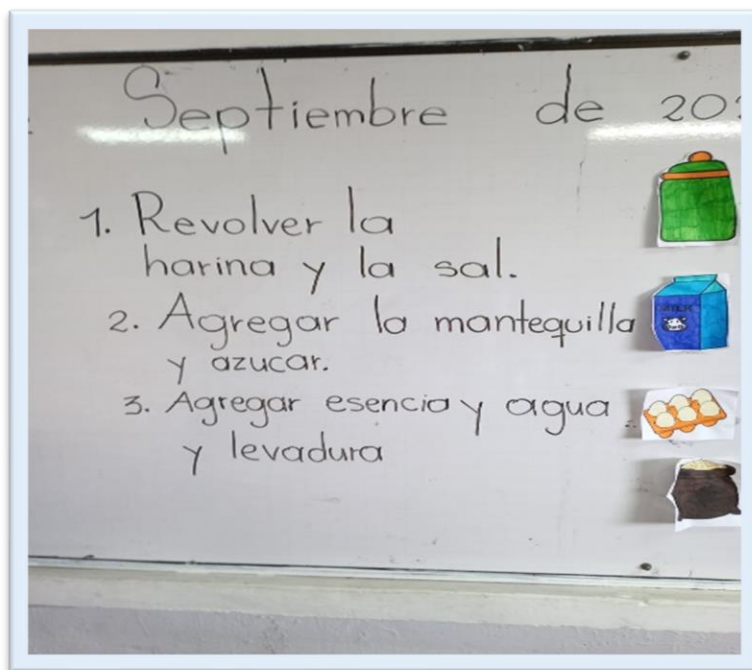 Septiembre de 20
1. Revolver la
harina y la sal.
2. Agregar la mantequilla
y azucar.
3. Agregar esencia y agua
y levadura